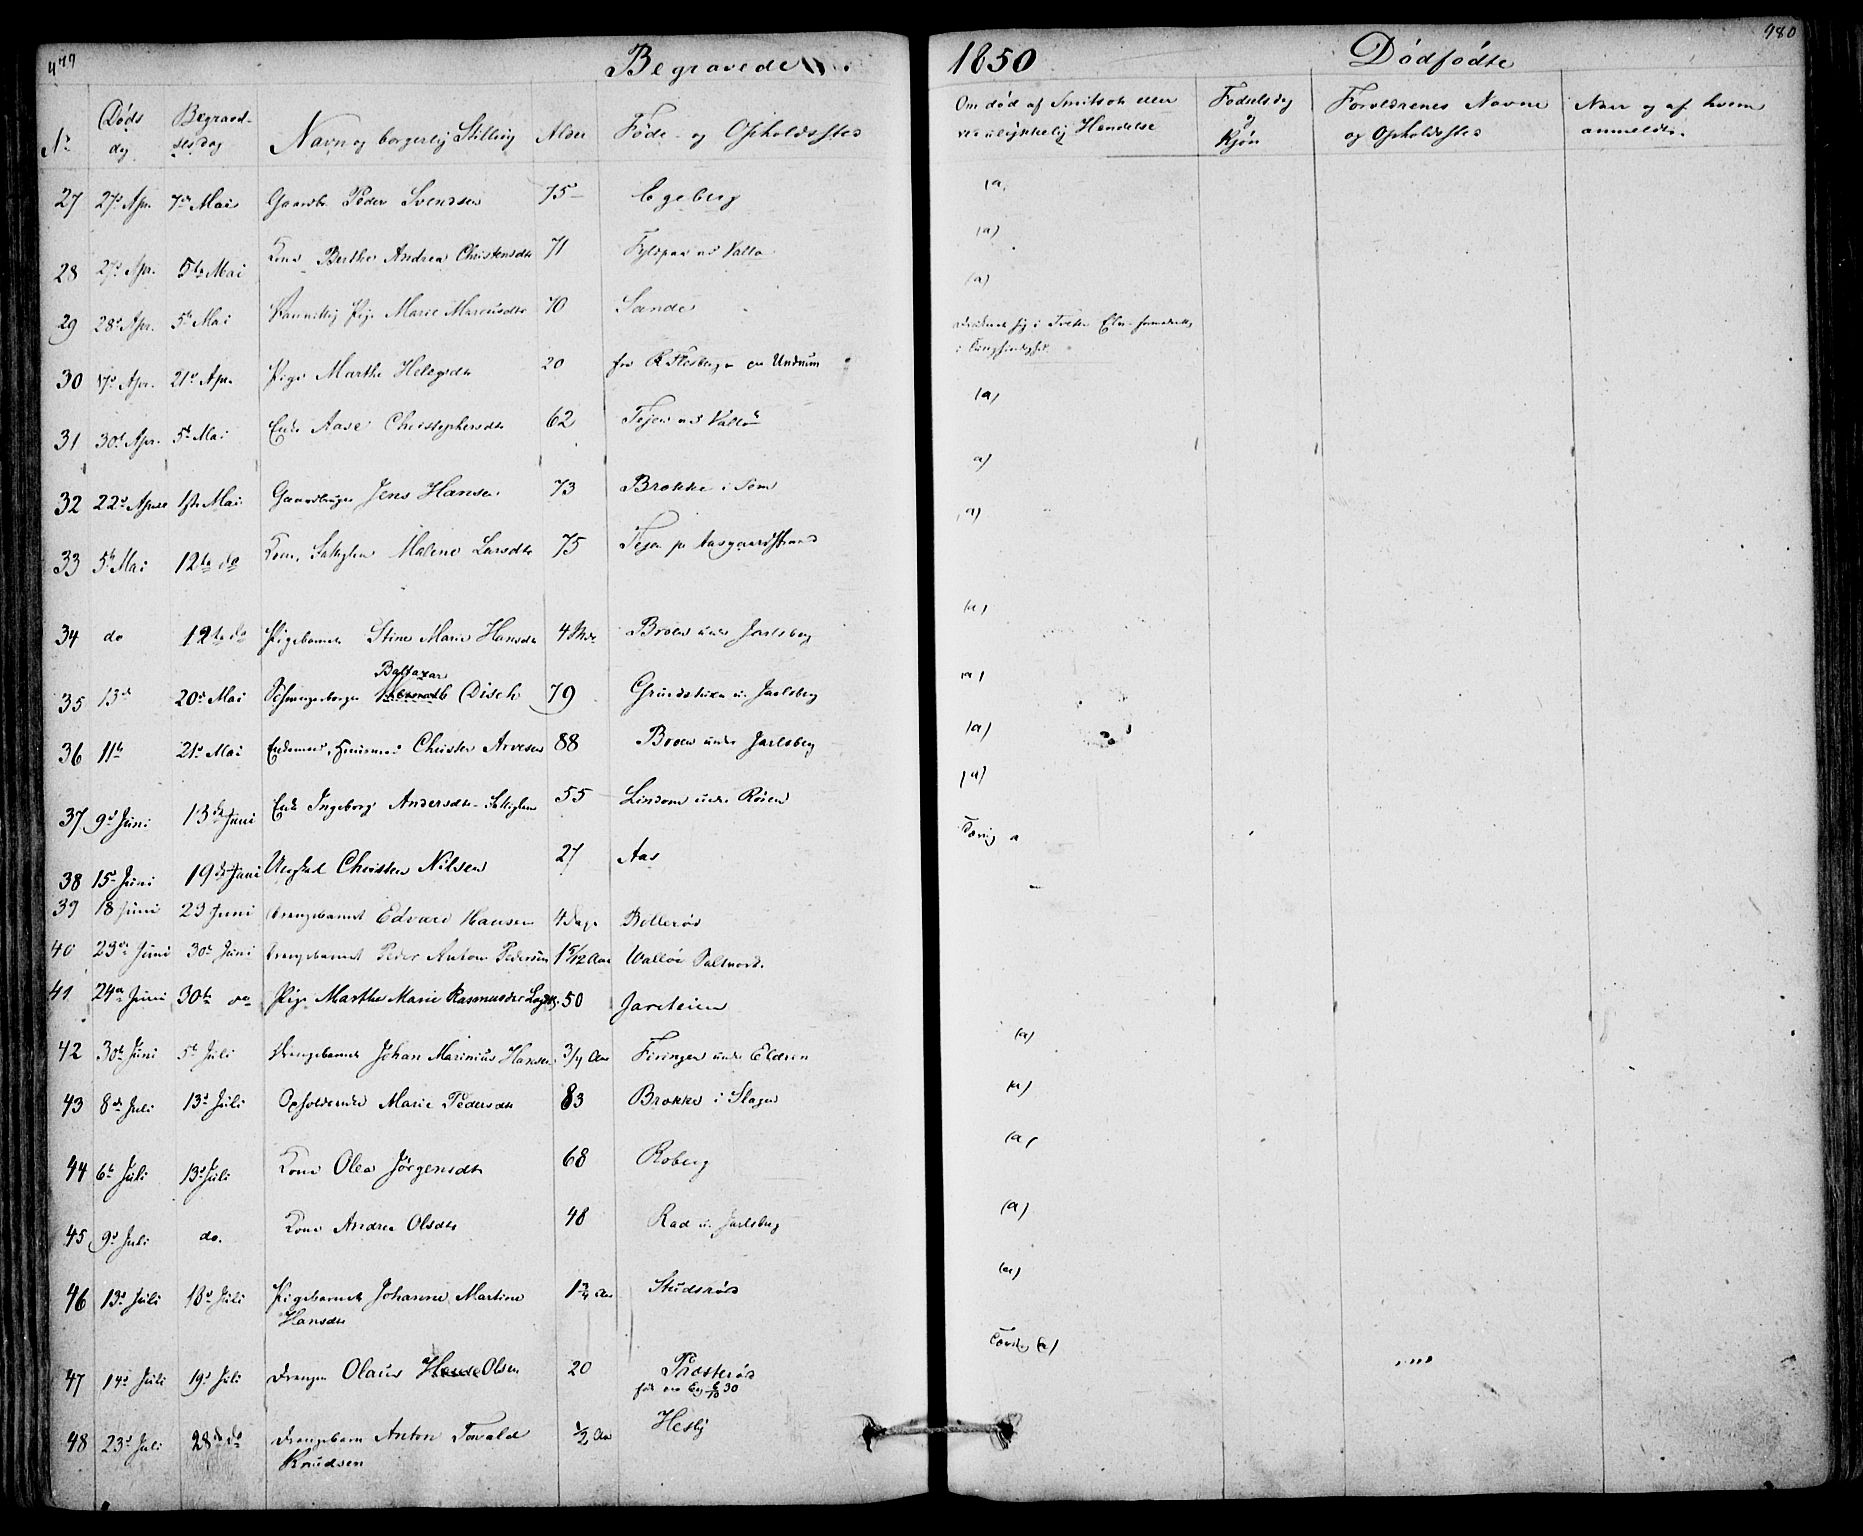 479
Begravede
1850
Dødfødte
480
No
Døds
dag
Begravel-
sesdag
Navn og borgerlig Stilling
Alder
Føde- og Opholdssted
Om død af Smitsot eller
ved ulykkelig Hendelse
Fødselsdag
og
Kjøn
Forældrenes Navne
og Opholdssted
Naar og af hvem
anmeldt.
27 27de Apr. 7de Mai Gaardbr. Peder Svendsen 75 Egeberg (a)
28 27de Apr. 5te Mai Kone Berthe Andrea Christensdtr 71 Vallø (a)
29 28de Apr. 5te Mai Vanvittig Pige Marie Marcusdtr 70 Sande (a)
30 17de Apr. 21de Apr. Pige Marthe Helegsdtr 20 fra Undrum
druknede sig i Elv
i Sindssyghed
31 30te Apr. 5te Mai Enke Aase Christophersdtr 62 Tejen ved Vallø (a)
32 22de April 1ste Mai Gaardbruger Jens Hansen 73 Brekke i Sem (a)
33 5te Mai 12te do Kone, Malene Larsdtr 75 Tejen pr Aasgaardstrand (a)
34 do 12te do Pigebarnet Stine Marie Hansdtr 4 Mdr Broen under Jarlsberg (a)
Baltazar
35 13de 20de Mai Disch 79 Jarlsberg (a)
36 11te 21de Mai Enkemand, Huusmand Christen Arvesen 88 Broen under Jarlsberg (a)
37 9de Juni 13de Juni Enke Ingeborg Andersdtr 55 Lindom under Røren (a)
38 15de Juni 19de Juni Ungkarl Christen Nilsen 27 Aas Tævig a
39 18 Juni 23 Juni Drengebarnet Edvard Hansen 4 Dage Bellerød
40 23de Juni 30te Juni Drengebarnet Peder Anton Pedersen 1 5/12 Aar Walløe Saltværk
41 24de Juni 30te do Pige Marthe Marie Rasmusdtr 50 Jareteien
42 30te Juni 5te Juli Drengebarnet Johan Marinius Hansen 3/4 Aar under Elveren (a)
43 8de Juli 13de Juli Opholdende Marie Pedersdtr 83 Brekke i Slagen (a)
44 6te Juli 13de Juli Kone Olea Jörgensdtr 68 Roberg (a)
45 9de Juli do. Kone Andrea Olsdtr 48 Rad u. Jarlsberg (a)
46 13de Juli 18de Juli Pigebarnet Johanne Martine 1 3/4 Aar Studsrød (a)
Hansdtr
47 14de Juli 19de Juli Drengen Olaus Olsen 20 Præsterød Tævig (a)
48 23de Juli 28de do Drengebarn Anton Torvald 1/2 Aar Hesby
Knudsen